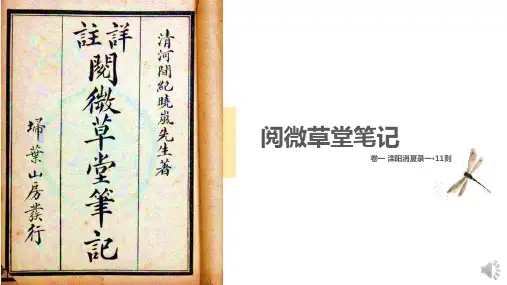 清河間紀曉嵐先生著
詳註
閱微草堂筆記
埽葉山房發行
阅微草堂笔记
卷一 滦阳消夏录一·11则